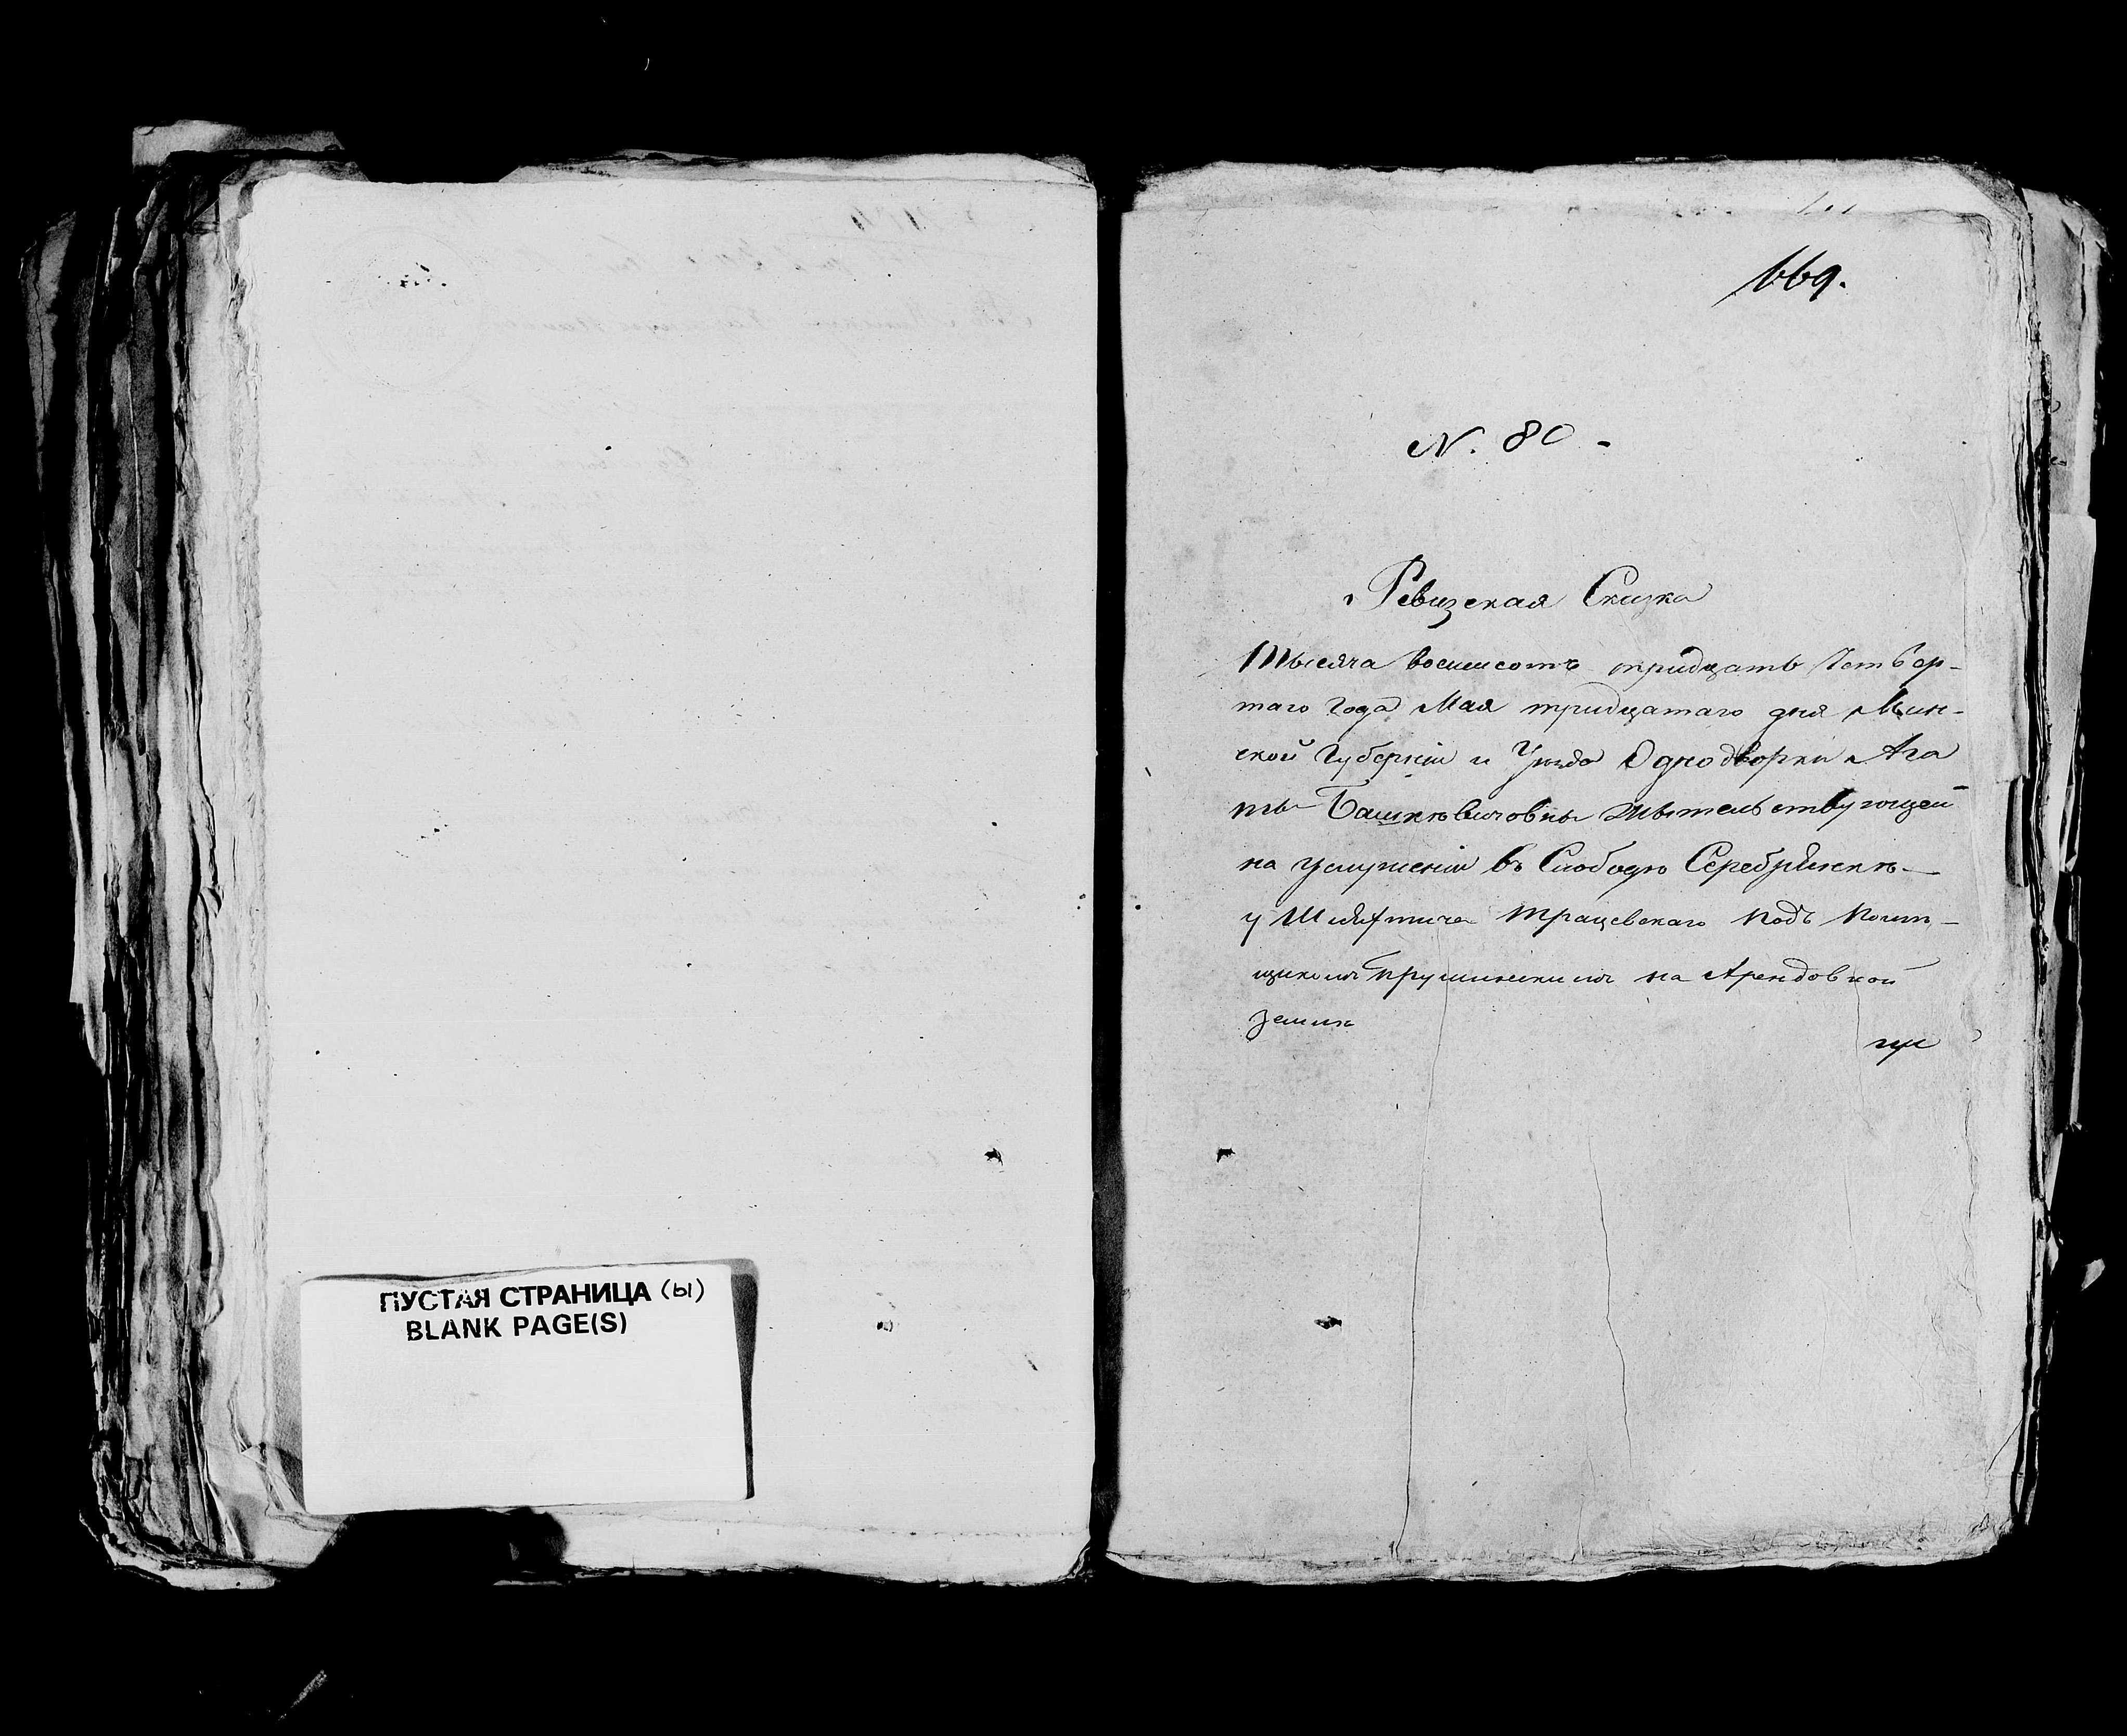 ПУСТАЯ СТРАНИЦА (ы)
BLANK PAGE(S)
669.
N. 80 -
Ревизская Сказка
Тысяча восемсотъ тридцать Четвер-
таго Года Мая тридцатаго дня Мин-
ской Губернии и Уезда Однодворки Ага
ты Башкѣвичовны Жытельствующей
на услужении въ Слободѣ Серебрянкѣ -
у Шляхтича Трацевскаго подъ помѣ -
щикомъ Прушинскимъ на Арендовной
землѣ